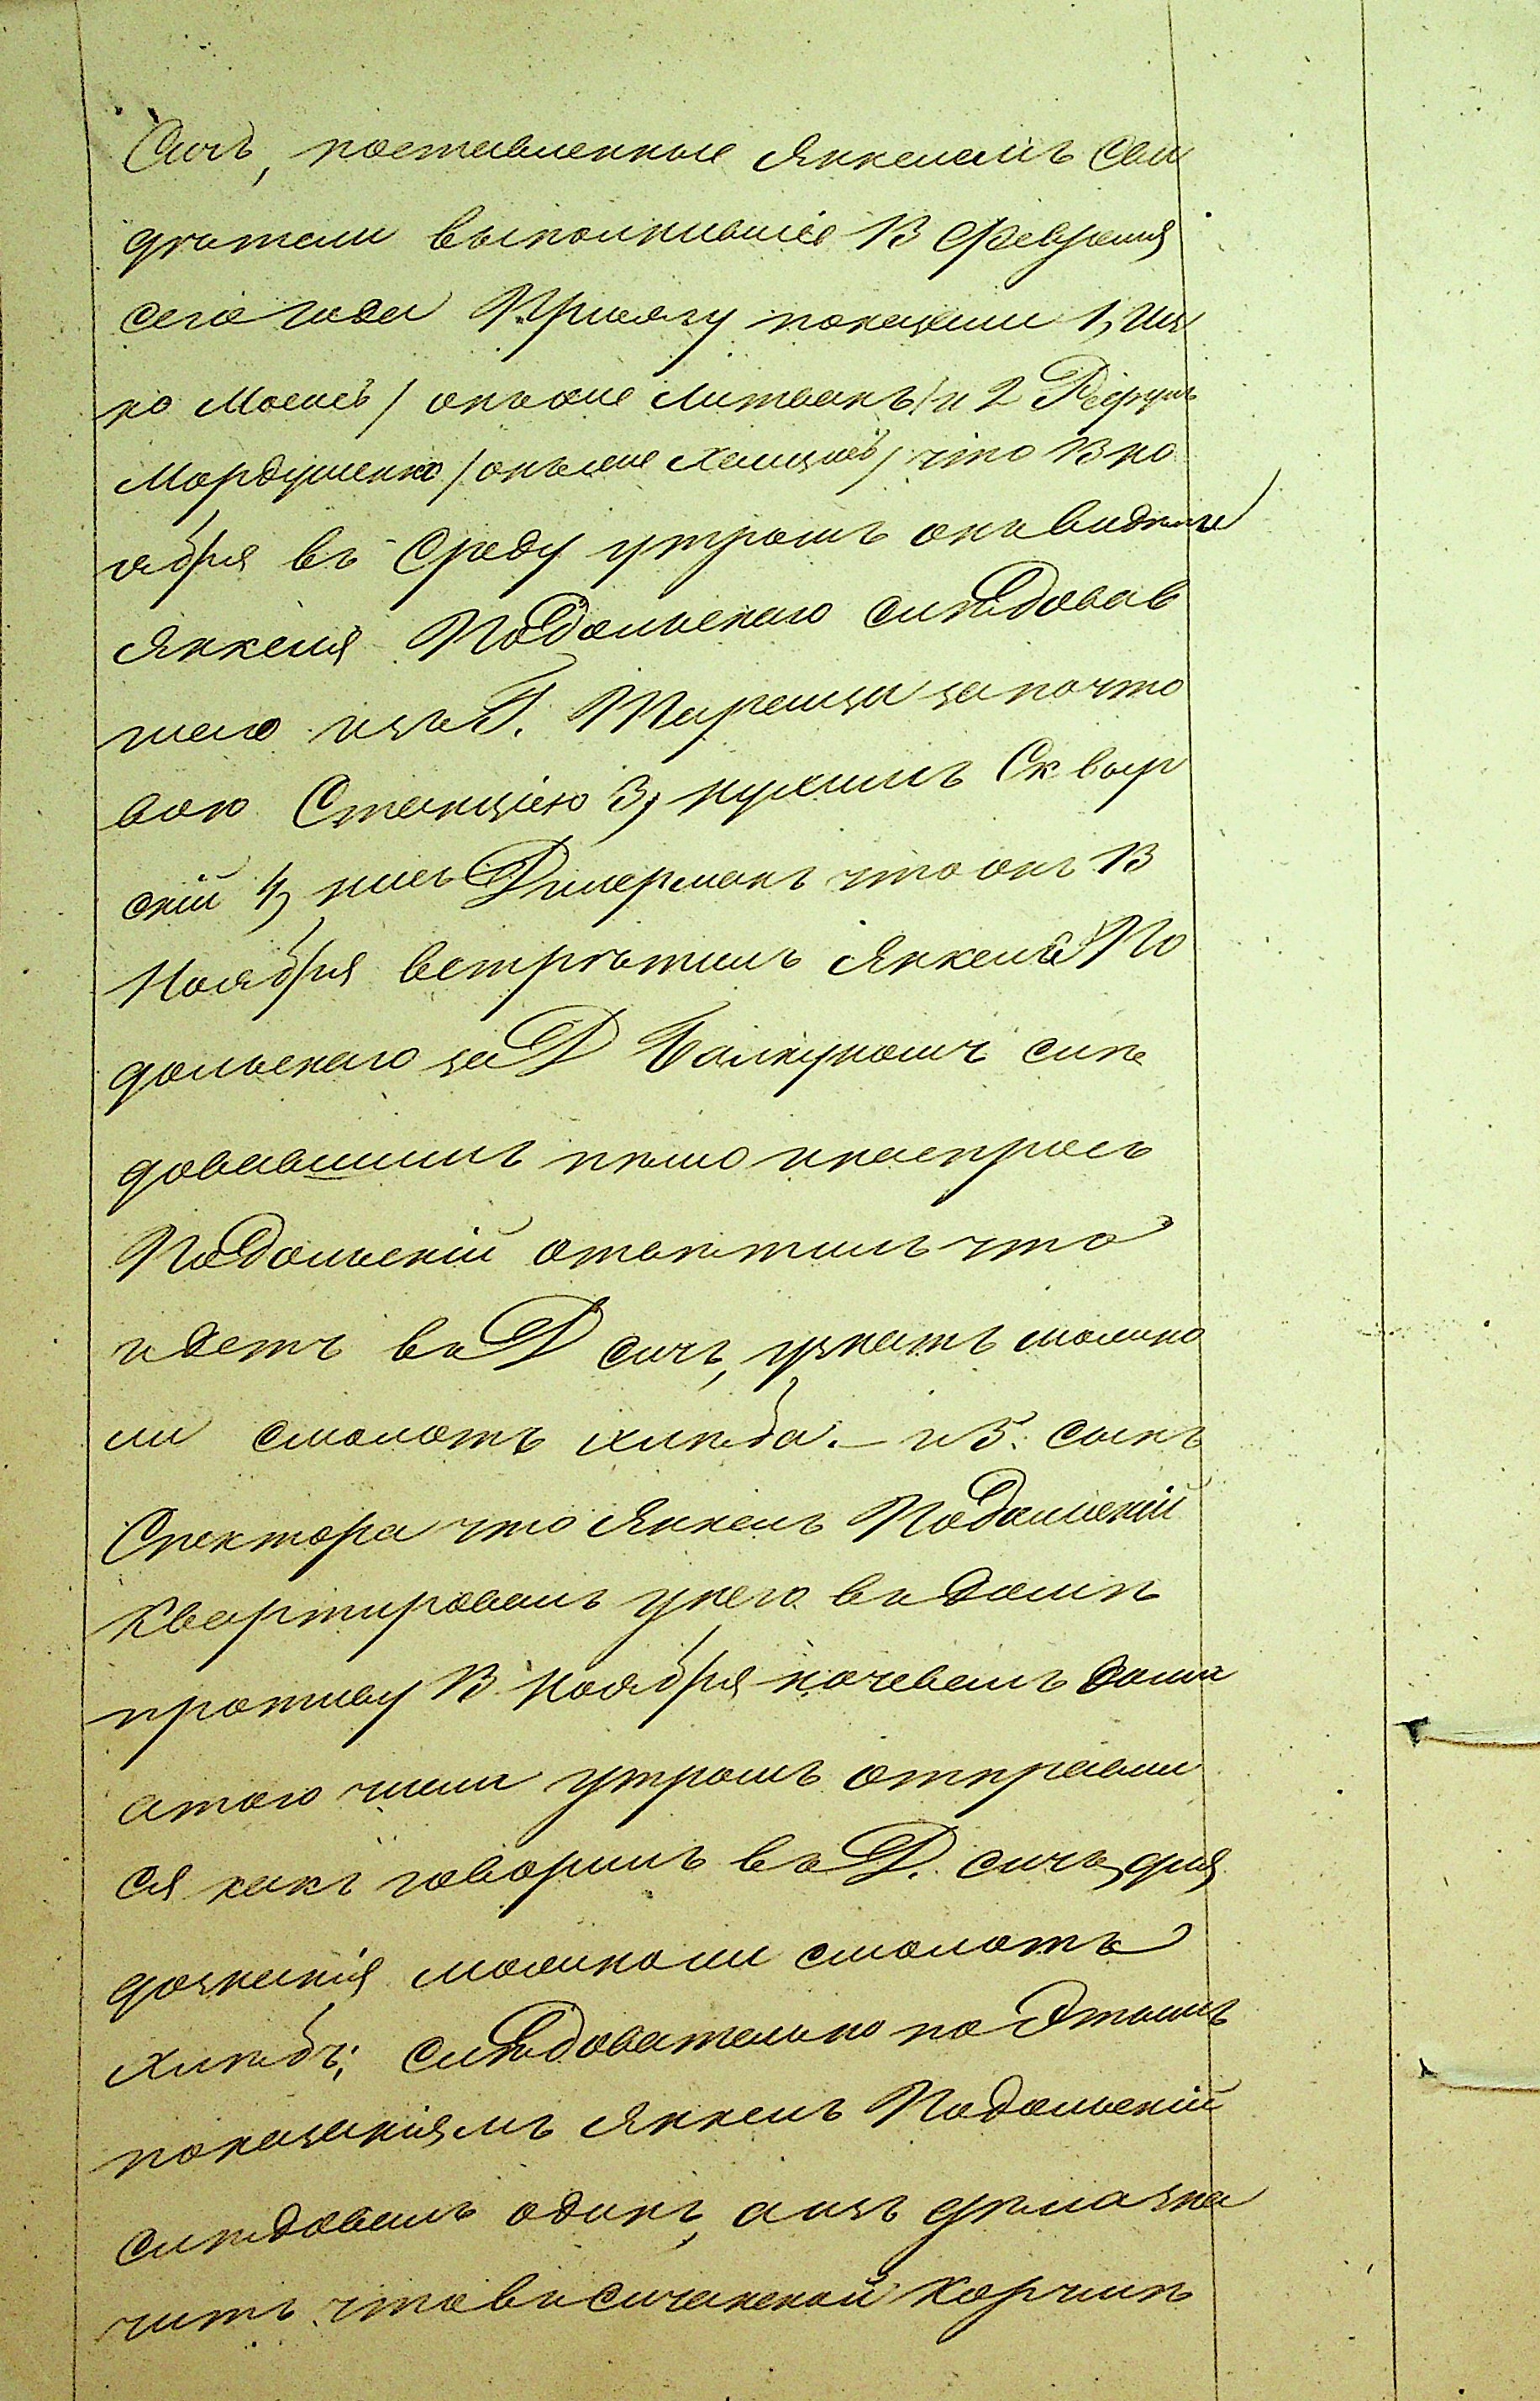 Сичъ, поставленные Янкелемъ Сви
дѣтели выполнившіе 13 Февраля
сего года Присягу показали 1, Иц
ко Моснъ / онъ же Литвакъ / и 2
Мордушенко / онъ же / что 13 но
ября въ Среду утромъ они видѣли
Янкеля Подольскаго слѣдовав
шаго изъ Г. Таращи за почто
вою Станціею 3, Нухимъ Сквир
скій 4, что онъ 13
Ноября встрѣтилъ Янкеля По
дольскаго за Д слѣ
довавшимъ пѣшо и на спросъ
Подольскій отвѣтилъ что
идетъ въ Д Сичъ, узнать можно
ли смолоть хлѣба. – и 5. сынъ
Спектора что Янкель Подольскій
Квартировалъ у него въ домѣ
противу 13 Ноября ночевалъ дома
а того числа утромъ отправил
ся какъ говорилъ въ Д. Сичъ, для
дознанія можно ли смолоть
хлѣбъ; слѣдовательно по этимъ
показаніямъ Янкель Подольскій
слѣдовалъ одинъ, а изъ дѣла зна
читъ что въ Сичанской Корчмѣ